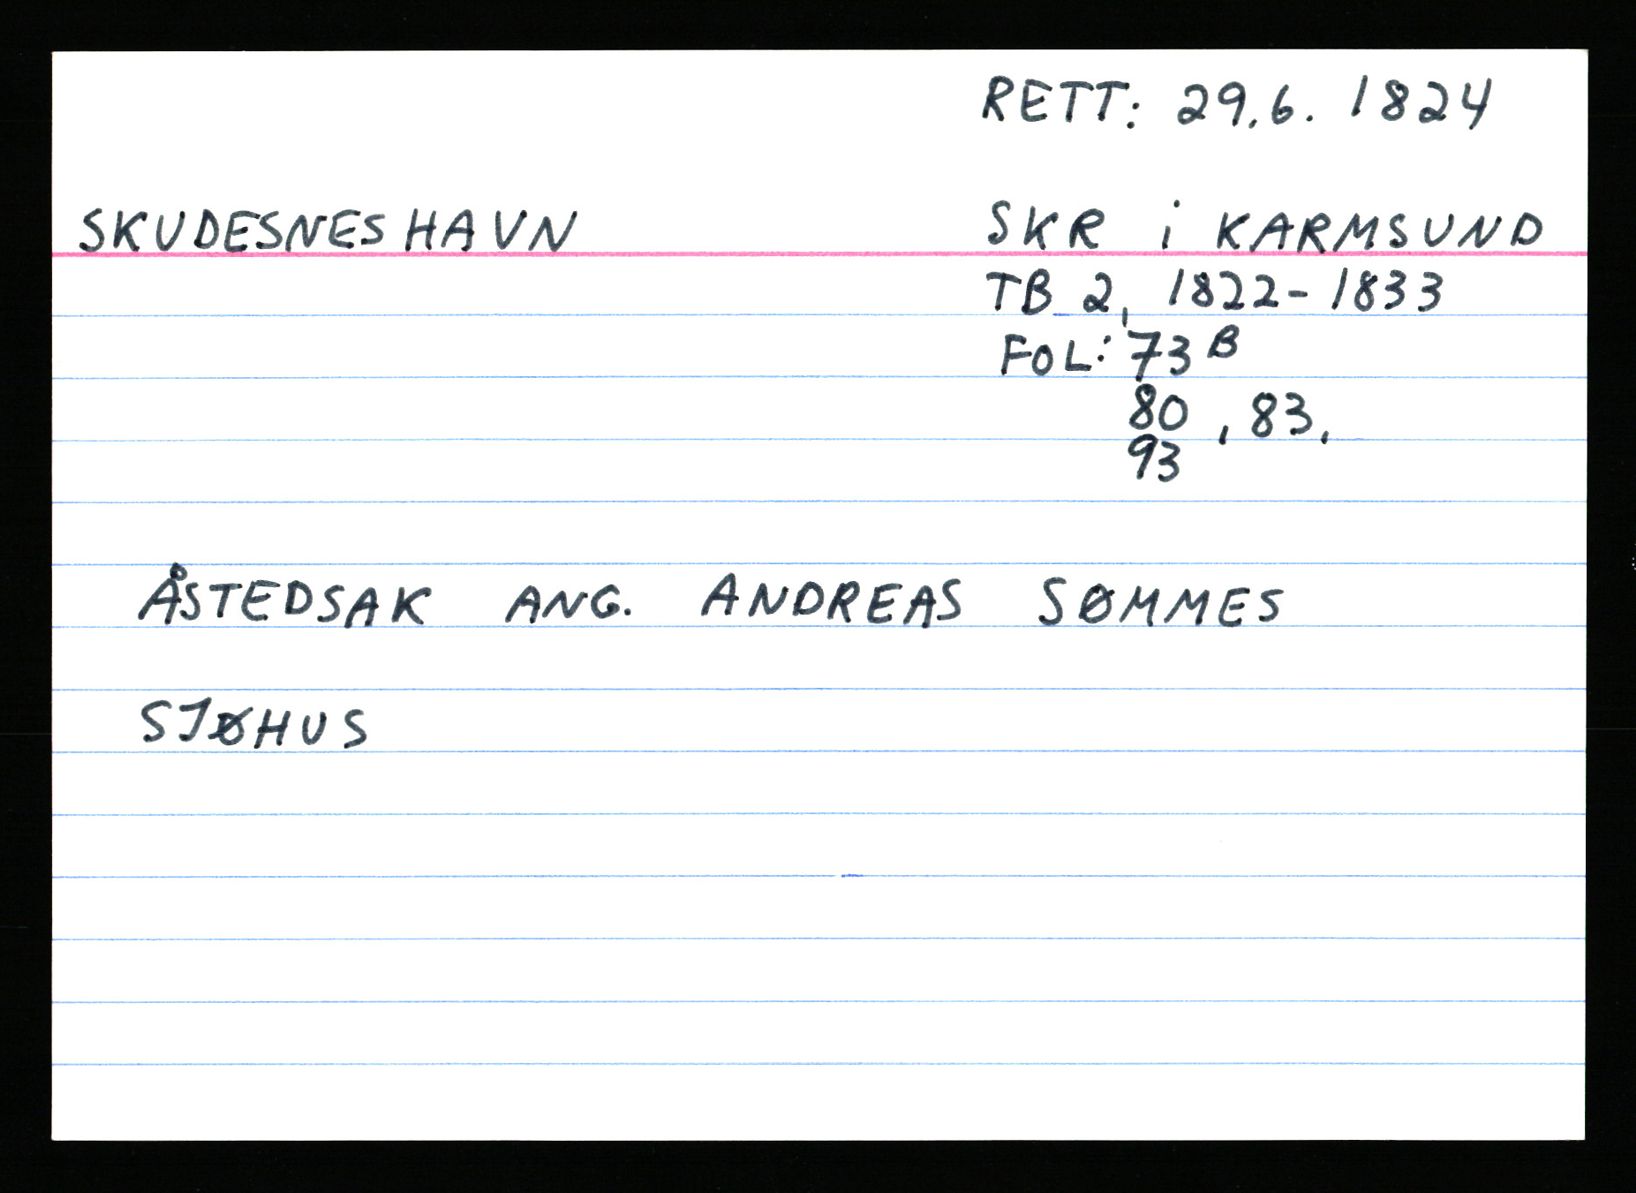 RETT: 29.6. 1824
SKUDESNESHAVN SKR i KARMSUND
TB 2, 1822-1833
FOL: 73 B
80, 83,
93
ÅSTEDSAK ANG. ANDREAS SØMMES
SJØHUS